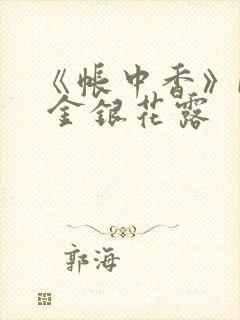 《帐中香》
金银花露
郭海